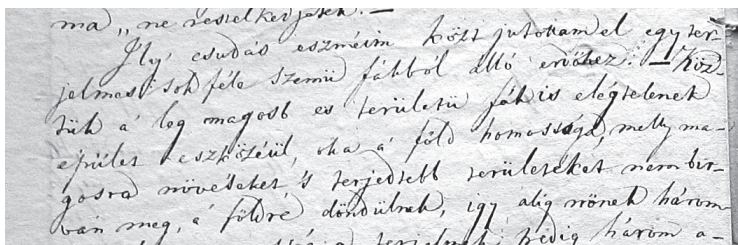 ma „ne restelkedjetek. —
Ily csudás eszméim közt jutottam el egy ter-
jelmes sok féle szemü fákból álló erdőhez. — Köz-
tük á leg magosb es területü fák is elégtelenek
épület eszközéül, oka á föld homossága, melly ma-
gosra növéseket 's terjedtebb területeket nem bir-
ván meg, á földre döndülnek, igy alig nőnek három
hédig három a-